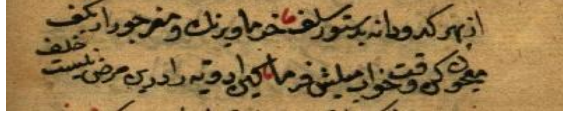 از بهر کدودانه بدستور سلف خرما و برنك و مغز جوز ار بكف
معجون کن وقت خواب میلش فرما کین ادویه را درین مرض نیست خلف